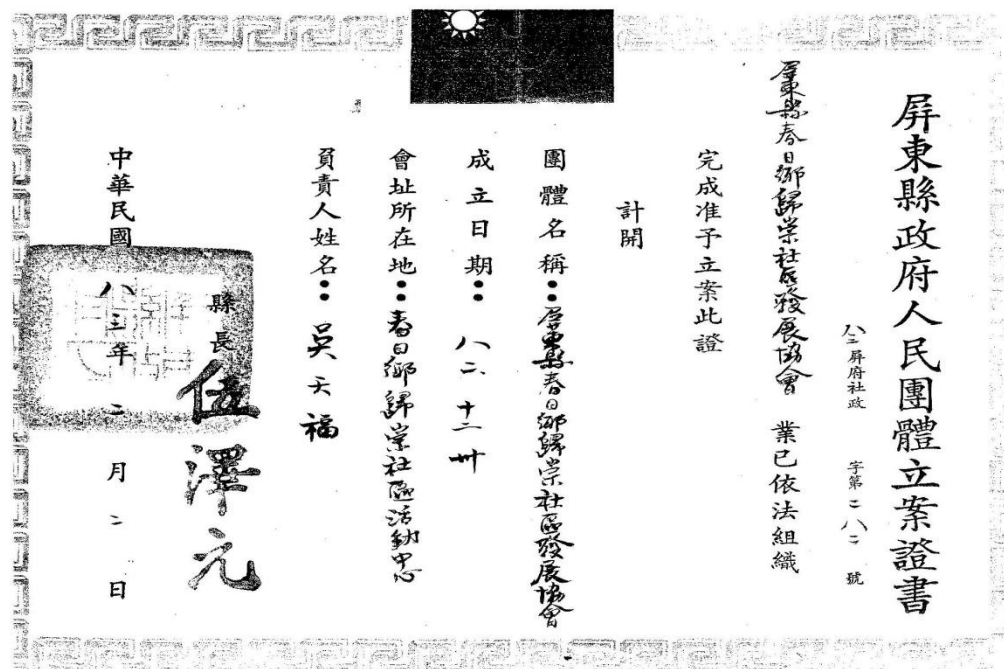 屏東縣政府人民團體立案證書
八二屏府社政 字第二八二號
屏東縣春日鄉歸崇社區發展協會 業已依法組織
完成准予立案此證
計開
團體名稱:屏東縣春日鄉歸崇社區發展協會
成立日期:八二、十二、卅
會址所在地:春日鄉歸崇社區活動中心
負責人姓名:吳天福
縣長 伍澤元
中華民國八三年二月二日